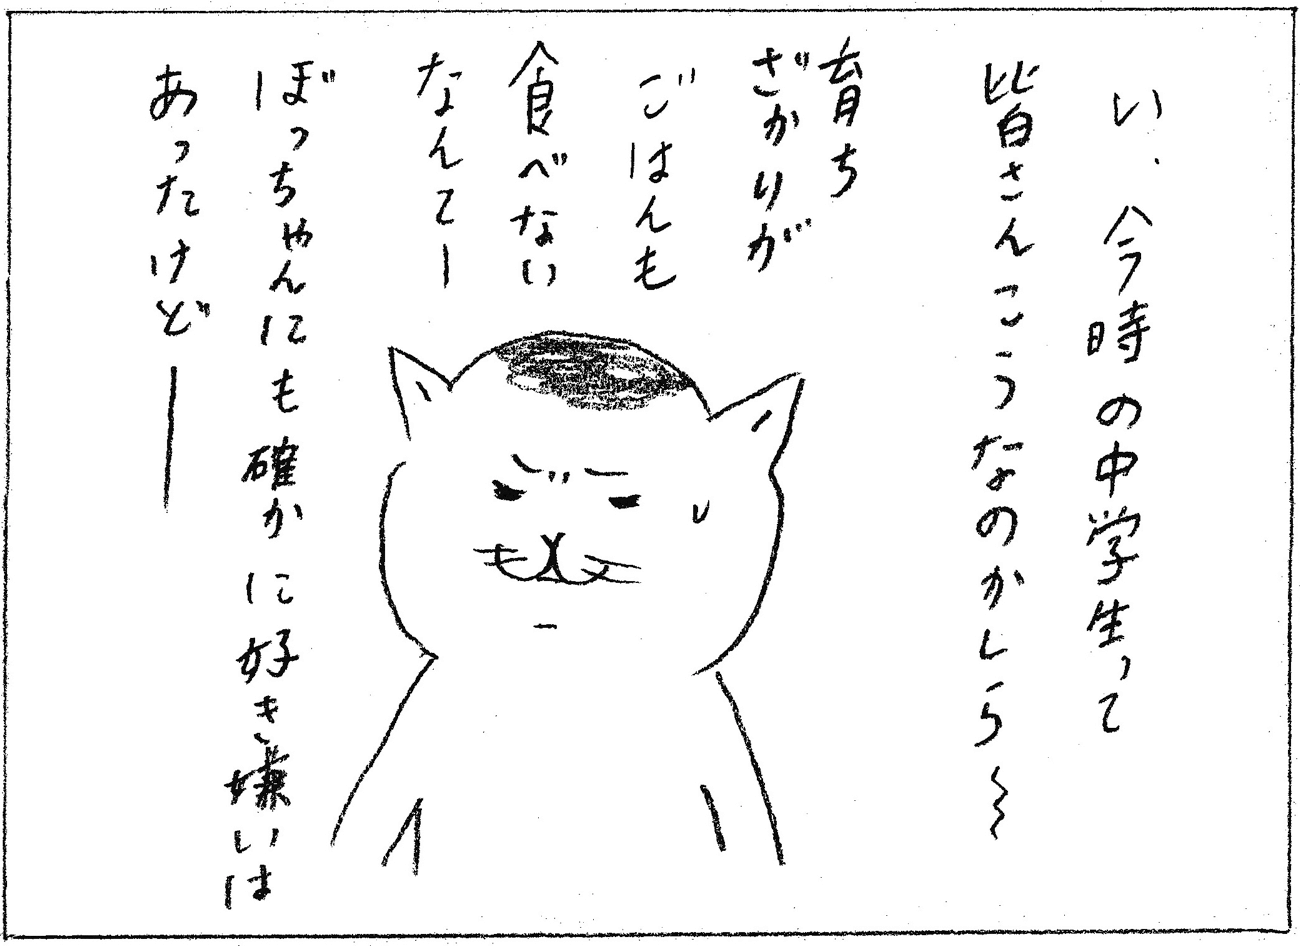 い、今時の中学生って
皆さんこうなのかしら〜
育ち
ざかりが
ごはんも
食べない
なんてー
ぼっちゃんにも確かに好き嫌いは
あったけど――